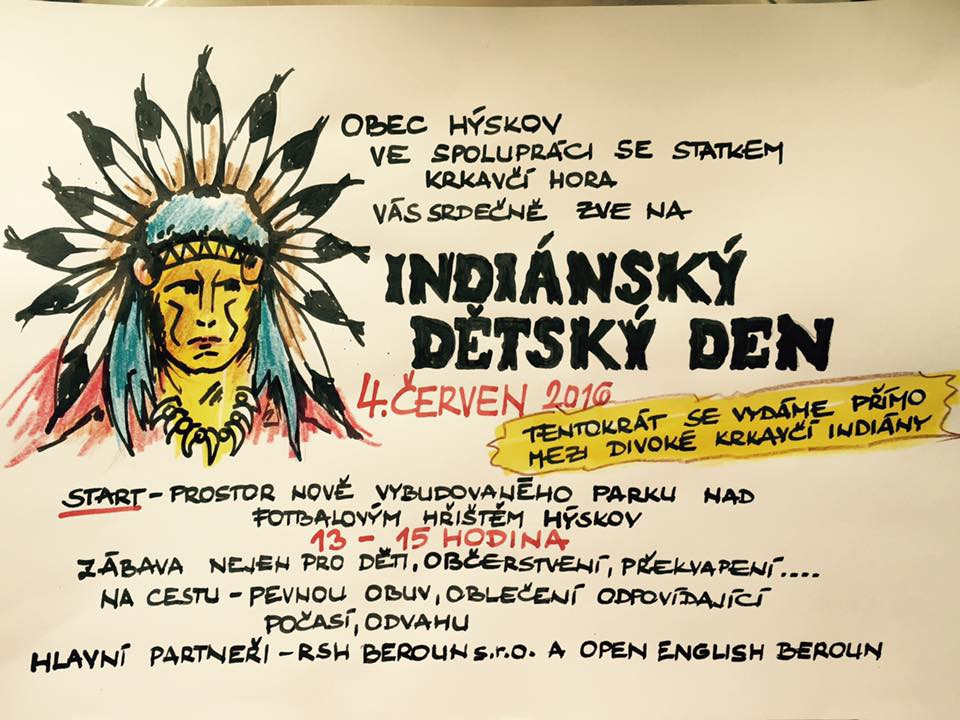 OBEC HÝSKOV
VE SPOLUPRÁCI SE STATKEM
KRKAVČÍ HORA
VÁS SRDEČNĚ ZVE NA
INDIÁNSKÝ
DĚTSKÝ DEN
4. ČERVEN 2016
TENTOKRÁT SE VYDÁME PŘÍMO
MEZI DIVOKÉ KRKAVČÍ INDIÁNY
START - PROSTOR NOVĚ VYBUDOVANÉHO PARKU NAD
FOTBALOVÝM HŘIŠTĚM HÝSKOV
13 - 15 HODINA
ZÁBAVA NEJEN PRO DĚTI, OBČERSTVENÍ, PŘEKVAPENÍ....
NA CESTU - PEVNOU OBUV, OBLEČENÍ ODPOVÍDAJÍCÍ
POČASÍ, ODVAHU
HLAVNÍ PARTNEŘI - RSH BEROUN s.r.o. A OPEN ENGLISH BEROUN